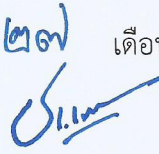 ๒๗ เดือน